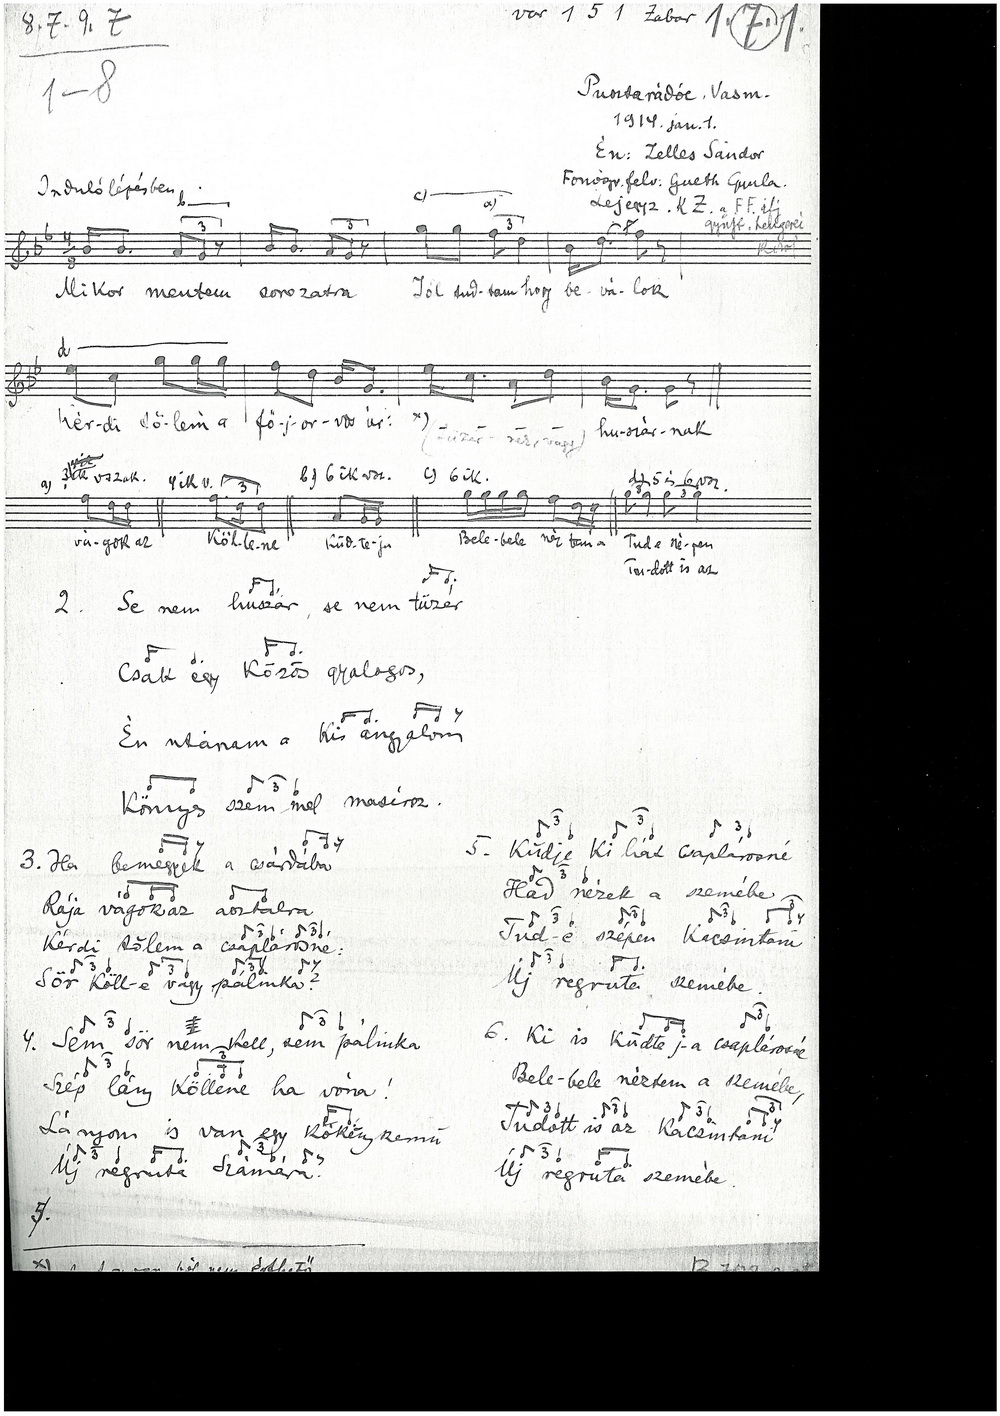 8. 7. 9. 7
var 1 5 1 Zabar 1. 7. 1.
1–8
Pusztarádóc. Vasm.
1914. jan. 1.
Én: Zelles Sándor
Fonógr. felv: Gueth Gyula.
Lejegyz. KZ. a FF.
Induló lépésben
b c) a)
3 3 3
Mikor mentem sorozatra Jól tud-tam hogy be-vá-lok
d
kér-di tő-lem a fő-j-or-vos úr: x) hu-szár-nak
a) vszak. 4ik v. b) 6ik vsz. c) 6ik. d) 5 és 6 vsz.
vá-gok az Köl-le-ne Küd-te-ja Bele-bele néz tem a Tud e sé-pen
Tu-dott is az
2. Se nem huszár, se nem tüzér
Csak egy Közös gyalogos,
Én utánam a kis angyalom
Könnyes szem mel masíroz.
3. Ha bemegyek a csárdába
Rája vágok az asztalra
Kérdi tőlem a csaplárosné:
Sör köll-e vagy pálinka?
4. Sem sör nem kell, sem pálinka
Szép lány köllene ha vóna!
Lányom is van egy kökényszemü
Új regruta számára.
5. Küdje ki hát csaplárosné
Had nézek a szemébe
Tud-e szépen kacsintani
Új regruta szemébe.
6. Ki is küdte j-a csaplárosné
Bele-bele néztem a szemébe,
Tudott is az kacsintani
Új regruta szemébe.
5.
x)